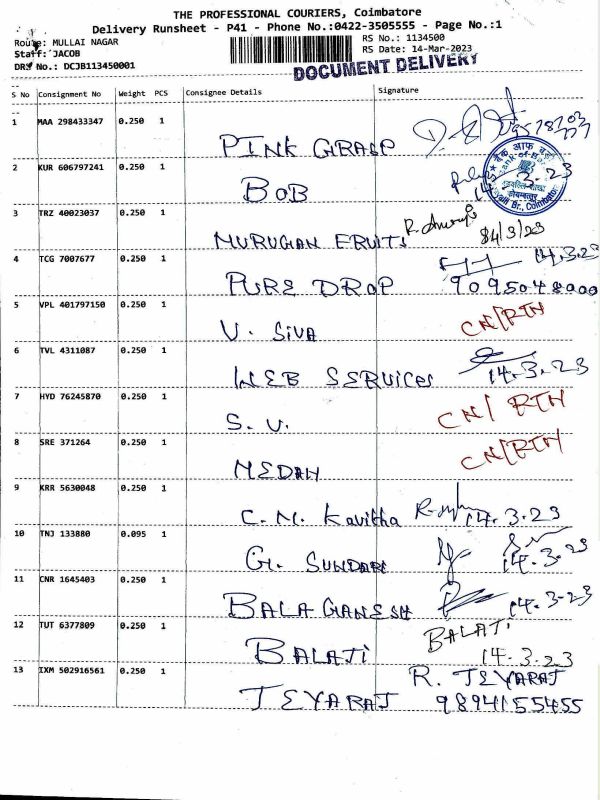 THE PROFESSIONAL COURIERS, Coimbatore
Delivery Runsheet - P41 - Phone No.:0422-3505555 - Page No.:1
Route: MULLAI NAGAR
RS No.: 1134500
Staff: JACOB
RS Date: 14-Mar-2023
DRS No.: DCJB113450001
DOCUMENT DELIVERY
S No Consignment No Weight PCS Consignee Details Signature
1 MAA 298433347 0.250 1
PINK GRASP
2 KUR 606797241 0.250 1
BOB 14.3.23
3 TRZ 40023037 0.250 1
MURUGAN FRUITS
4 TCG 7007677 0.250 1 14.3.23
PURE DROP 9095048000
5 VPL 401797150 0.250 1
V. SIVA CN/RTN
6 TVL 4311087 0.250 1
WEB SERVICES 14.3.23
7 HYD 76245870 0.250 1
S. V. CN/RTN
8 SRE 371264 0.250 1
MEDAN CN/RTN
9 KRR 5630048 0.250 1
C. M. Kavitha 14.3.23
10 TNJ 133880 0.095 1
G. SUNDARI 14.3.23
11 CNR 1645403 0.250 1
BALAGANESH 14.3.23
12 TUT 6377809 0.250 1 BALAJI
BALAJI 14.3.23
13 IXM 502916561 0.250 1 R. JEYARAJ
JEYARAJ 9894155455